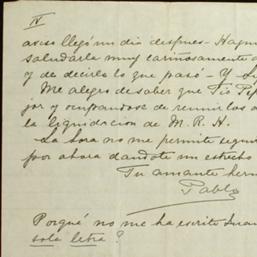 IV
aviso llegó un dia despues - Hagm
saludarla muy cariñosamente d
y de decirle lo que pasó - Y Lu
Me alegro de saber que Tio Pep
jor y ocupandose de reunir los a
la liquidacion de M. R. H.
La hora no me permite segui
por ahora dandote un estrecho
Tu amante herm
Pablo
Porqué no me ha escrito Juan
sola letra?